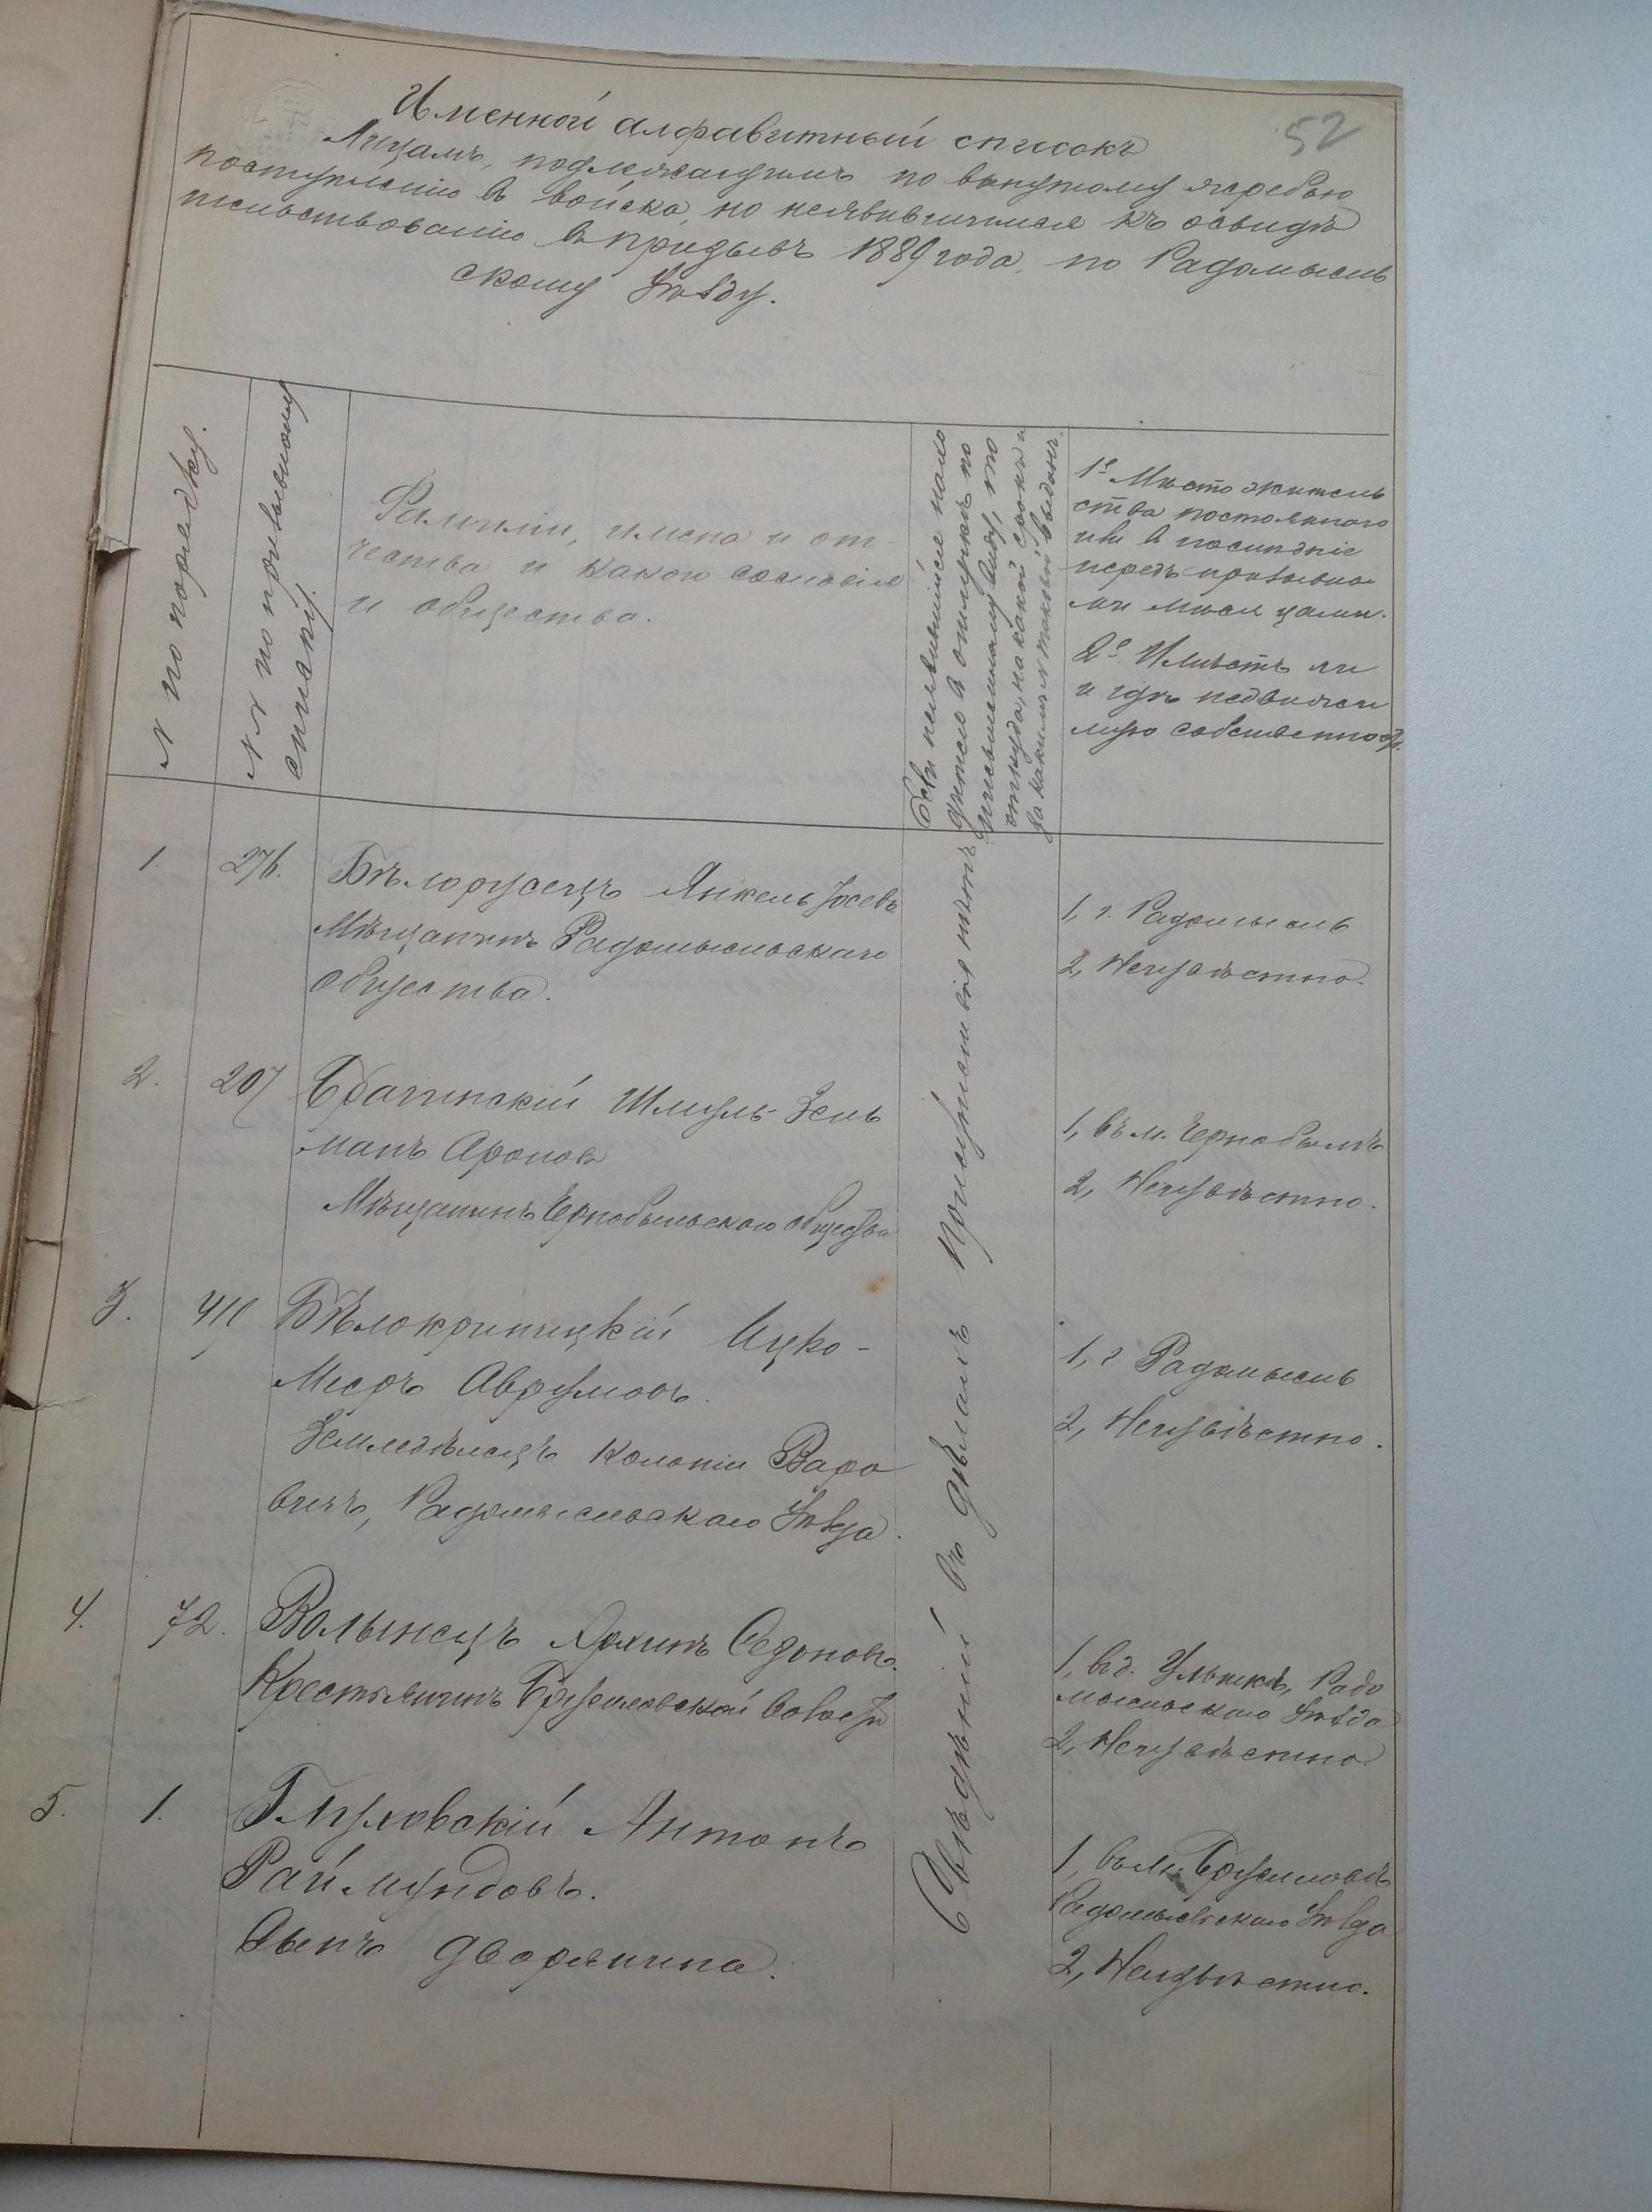 52
Именной алфавитный списокъ
Лицамъ, подлежащимъ по вынутому жребью
поступленію въ войска, но неявившимся къ освидѣ
тельствованію въ призывъ 1889 года, по Радомысль
скому уѣзду.
№ по порядку.
№№ по призывному
списку.
Фамиліи, имена и от-
чества и какого сословія
и общества.
Если неявившійся нахо
дится въ отлучкѣ по
письменному виду, то
откуда, на какой срокъ и
за какимъ № таковой выданъ.
1е Мѣсто житель
ства постояннаго
или въ послѣдніе
передъ призывно
мъ мѣся цами.
2е Имѣетъ ли
и гдѣ недвижи
мую собственность.
1. 276. Бѣлорусецъ Янкель Іосевъ
Мѣщанинъ Радомысльскаго
общества.
1, г. Радомысль
2, Неизвѣстно.
2. 207 Брагинскій Шмуль-Зель
манъ Ароновъ
Мѣщанинъ Чернобыльскаго общества
1, въ м. Чернобылѣ
2, Неизвѣстно.
3. 411 Бѣлокриницкій Ицко-
Меръ Аврумовъ.
Земледѣлецъ колоніи Варо
вичъ, Радомысльскаго уѣзда.
1, г Радомысль
2, Неизвѣстно.
4. 72. Волынецъ Яримъ Седоновъ.
Крестьянинъ Брусиловской волости
1, въ д. Улышкѣ, Радо
мысльскаго уѣзда
2, Неизвѣстно
5. 1. Глуховскій Антонъ
Раймундовъ.
Сынъ дворянина.
1, въ м. Брусиловѣ
Радомысльскаго уѣзда
2, Неизвѣстно.
Свѣдѣній въ дѣлахъ присутствія нѣтъ